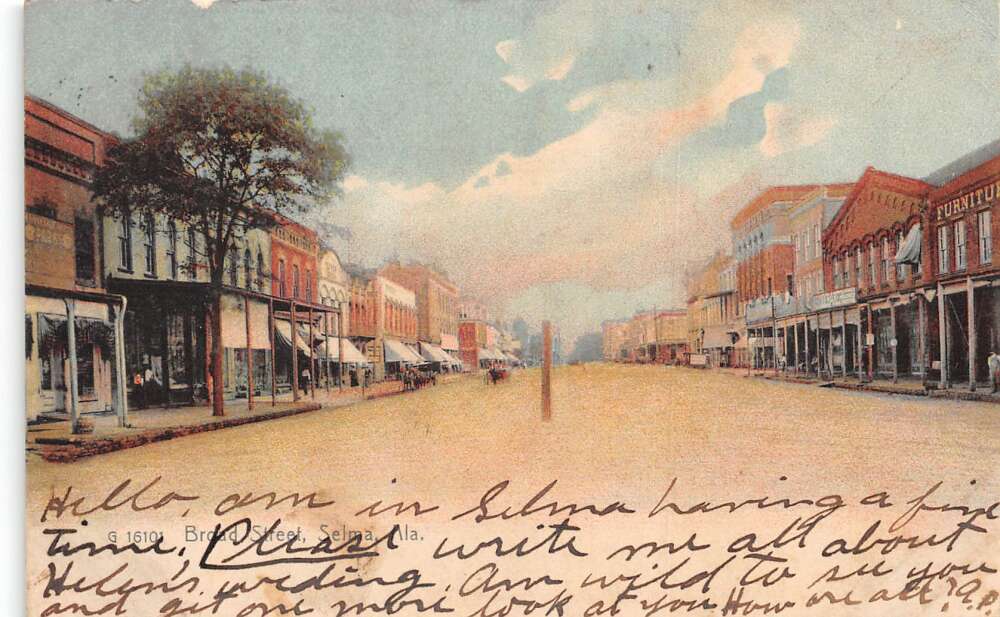 FURNITU
Hello, am in Selma having a fine
G 16101 Broad Street, Selma, Ala.
time, Please write me all about
Helen's weding, Am wild to see you
and git one more look at you How are all? A.P.